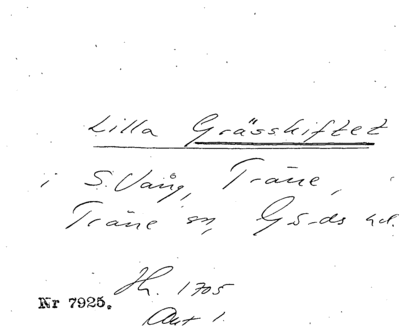 Lilla Grässkiftet
i S. Vång, Träne,
Träne sn, G s-ds hd.
Hh. 1705
Akt 1.
Nr 7925.